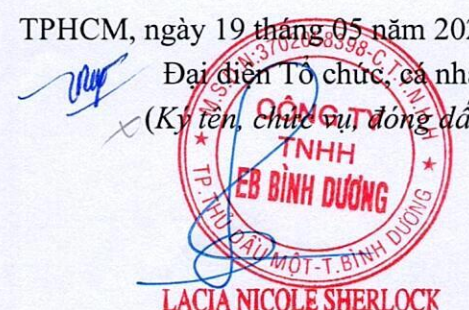 TPHCM, ngày 19 tháng 05 năm 202
Đại diện Tổ chức, cá nh
(Ký tên, chức vụ, đóng dấ
CÔNG TY
TNHH
EB BÌNH DƯƠNG
TP. THỦ DẦU MỘT-T. BÌNH DƯƠNG
LACIA NICOLE SHERLOCK